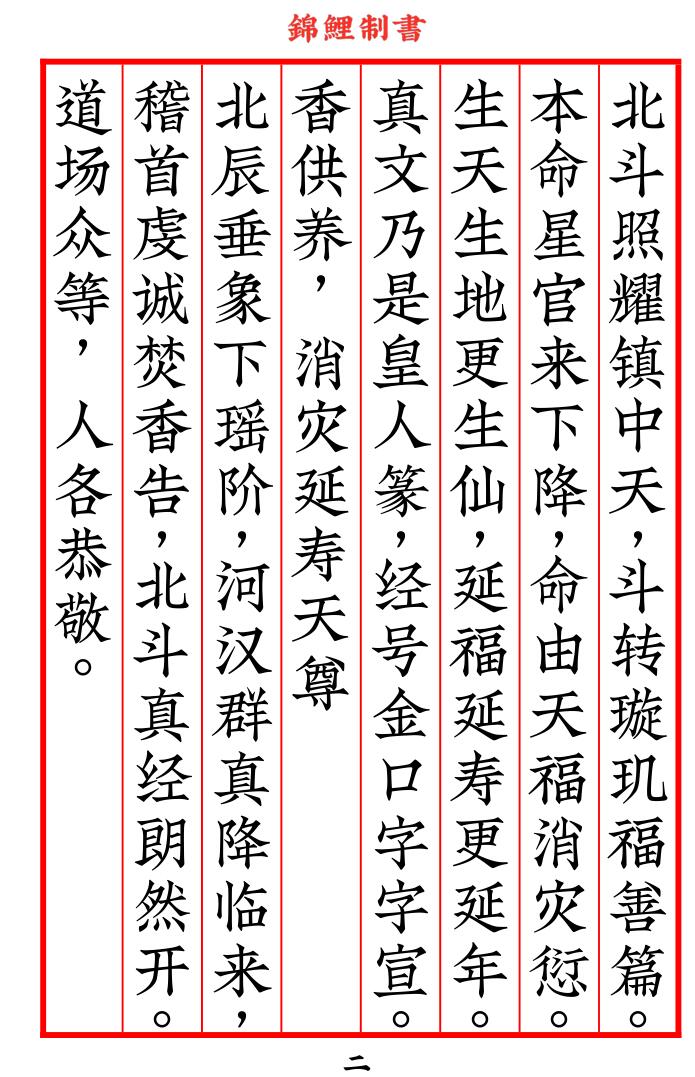 錦鯉制書
北斗照耀镇中天，斗转璇玑福善篇。
本命星官来下降，命由天福消灾愆。
生天生地更生仙，延福延寿更延年。
真文乃是皇人篆，经号金口字字宣。
香供养， 消灾延寿天尊
北辰垂象下瑶阶，河汉群真降临来，
稽首虔诚焚香告，北斗真经朗然开。
道场众等， 人各恭敬。
二